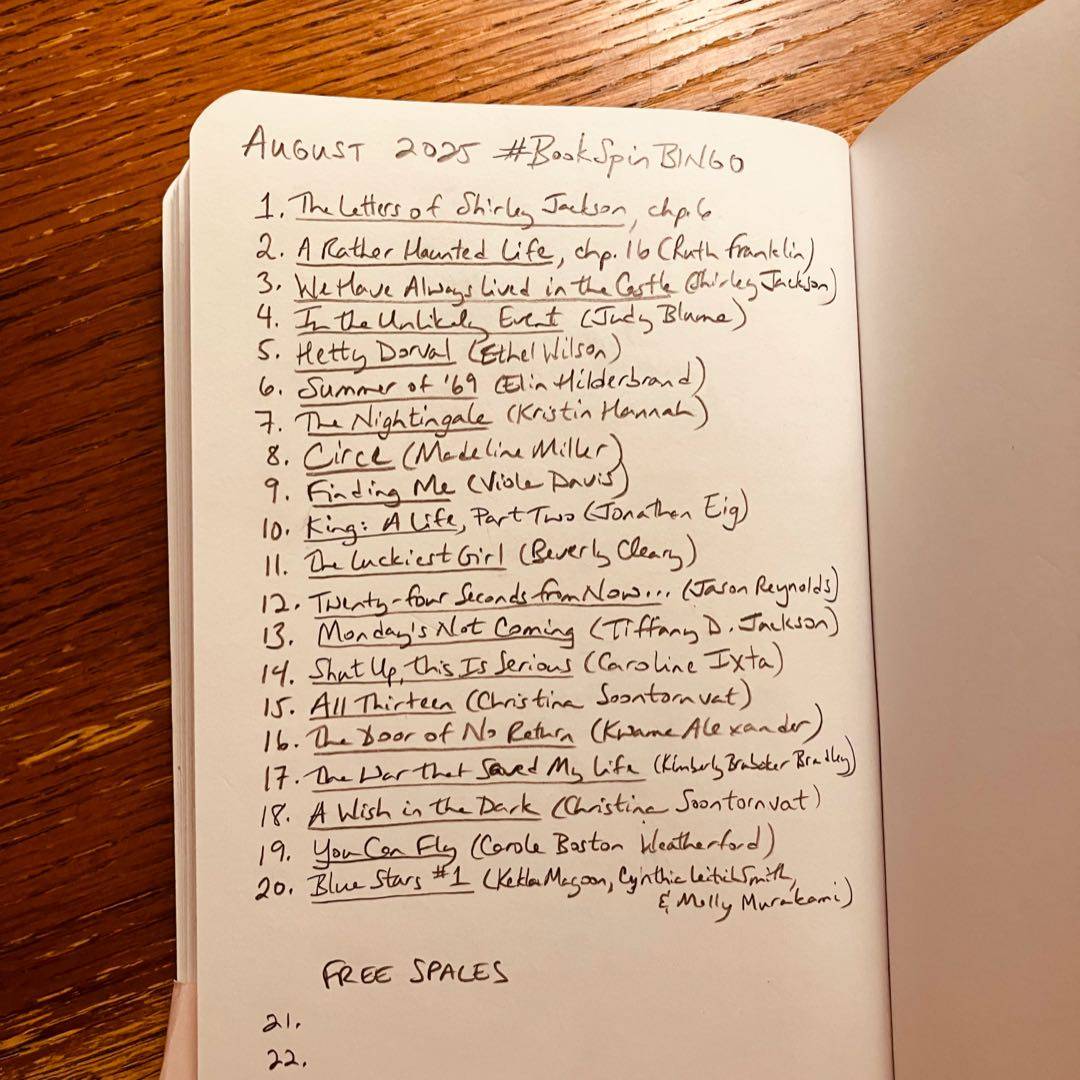 AUGUST 2025 #BookSpinBINGO
1. The Letters of Shirley Jackson, chp. 6
2. A Rather Haunted Life, chp. 16 (Ruth Franklin)
3. We Have Always Lived in the Castle (Shirley Jackson)
4. In the Unlikely Event (Judy Blume)
5. Hetty Dorval (Ethel Wilson)
6. Summer of '69 (Elin Hilderbrand)
7. The Nightingale (Kristin Hannah)
8. Circe (Madeline Miller)
9. Finding Me (Viola Davis)
10. King: A Life, Part Two (Jonathan Eig)
11. The Luckiest Girl (Beverly Cleary)
12. Twenty-four Seconds from Now... (Jason Reynolds)
13. Monday's Not Coming (Tiffany D. Jackson)
14. Shut Up, this Is Serious (Caroline Ixta)
15. All Thirteen (Christina Soontornvat)
16. The Door of No Return (Kwame Alexander)
17. The War that Saved My Life (Kimberly Brubaker Bradley)
18. A Wish in the Dark (Christina Soontornvat)
19. You Can Fly (Carole Boston Weatherford)
20. Blue Stars #1 (Kekla Magoon, Cynthia Leitich Smith,
& Molly Murakami)
FREE SPACES
21.
22.